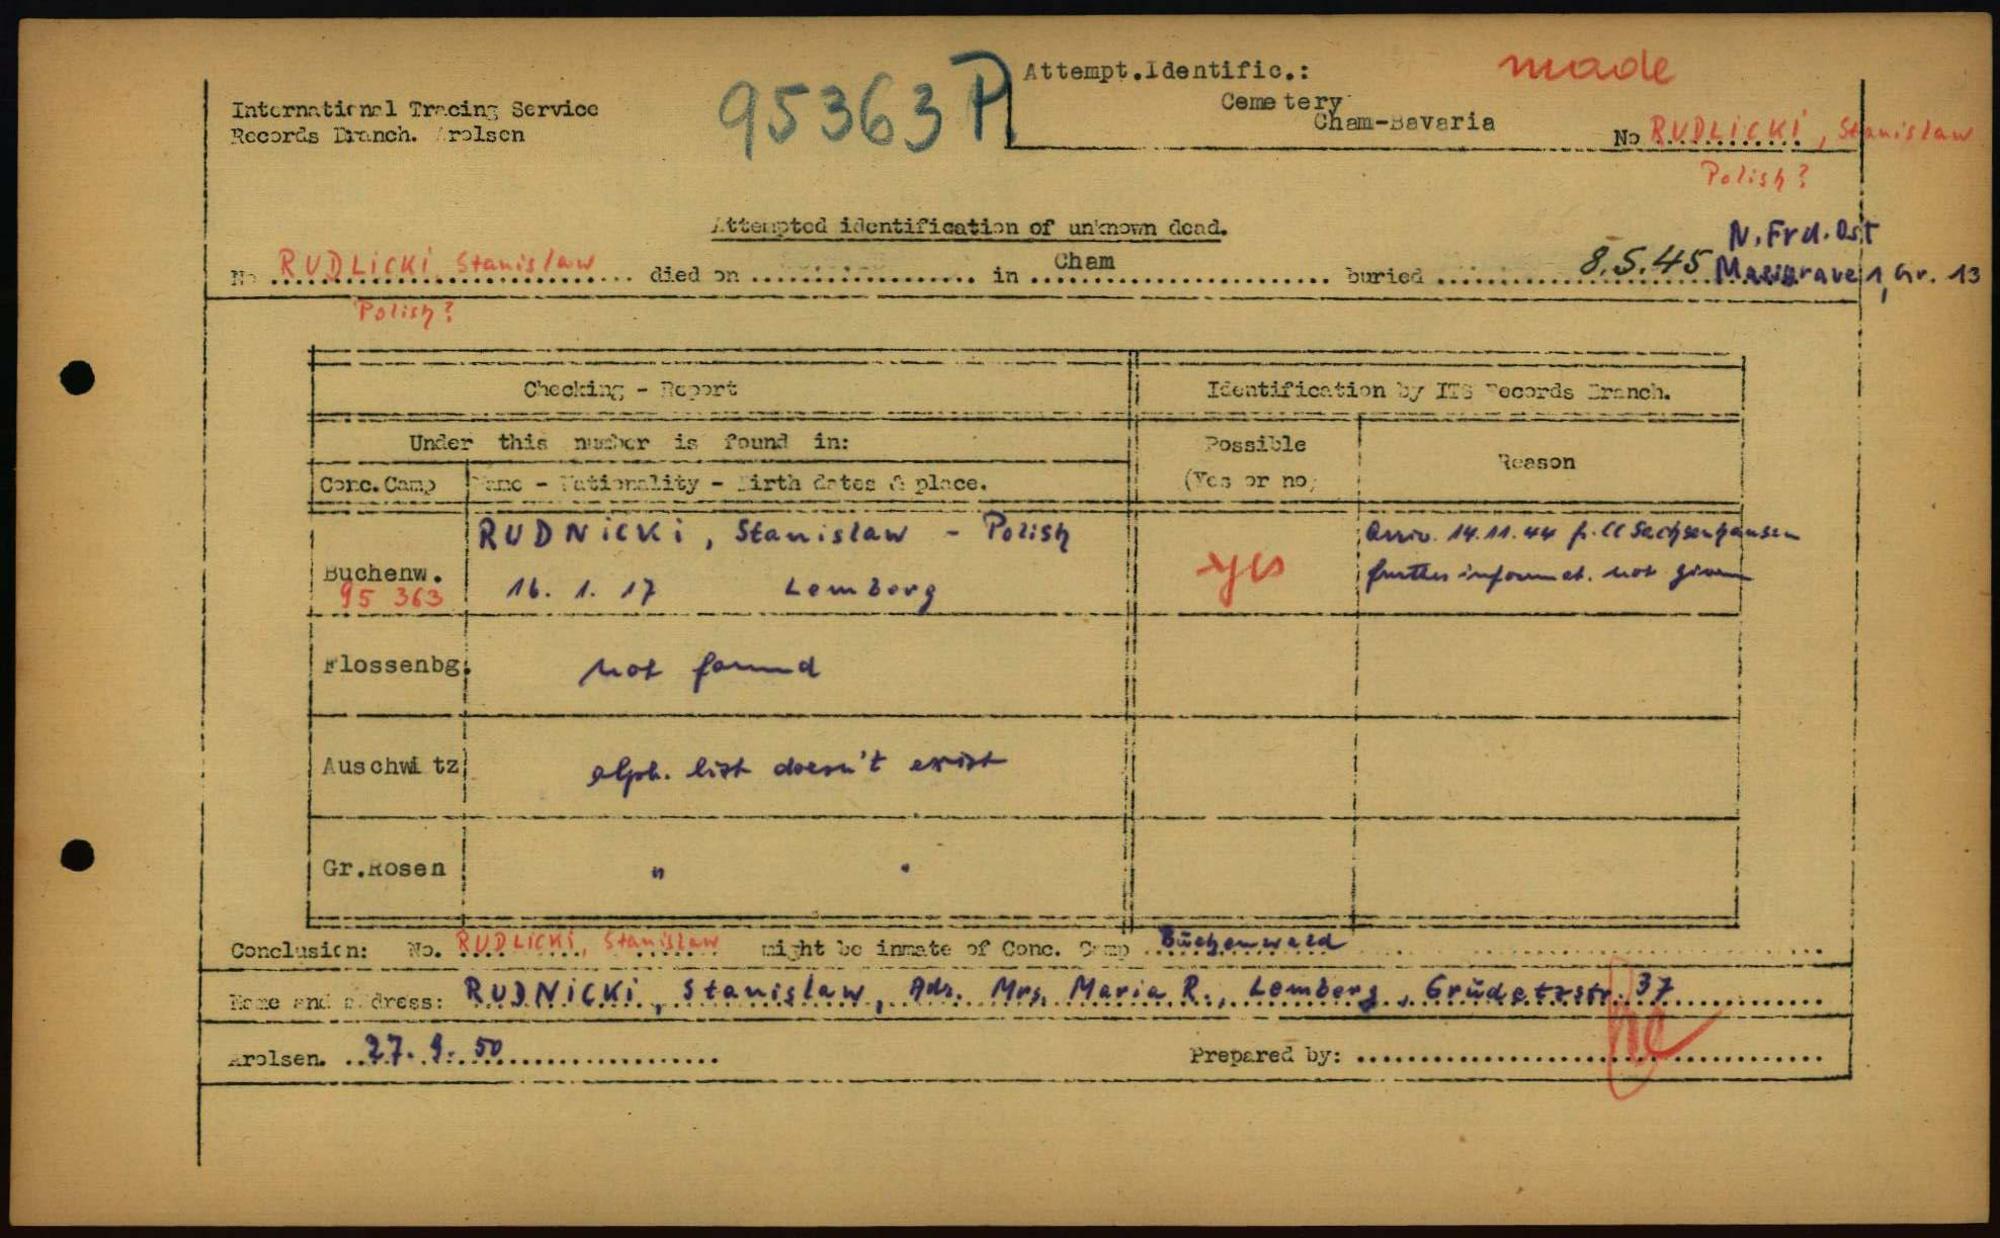 95363 P
Attempt.Identific.:
made
Cemetery
Cham-Bavaria
International Tracing Service
Records Branch. Arolsen
No RUDLICKI, Stanislaw
Polish?
Attempted identification of unknown dead.
N. Frd. Ost
No RUDLICKI Stanislaw died on in Cham buried 8.5.45 Massgrave 1, Gr. 13
Polish?
Checking - Report
Identification by ITS Records Branch.
Under this number is found in:
Possible
(Yes or no)
Reason
Conc. Camp
Name - Nationality - Birth dates & place.
Buchenw.
95 363
RUDNICKI, Stanislaw - Polish
16. 1. 17 Lemberg
yes
Arriv. 14.11.44 fr. CC Sachsenhausen
further informat. not given
Flossenbg.
not found
Auschwitz
alph. list doesn't exist
Gr.Rosen
" "
Conclusion: No. RUDLICKI, Stanislaw might be inmate of Conc. Camp Buchenwald
Name and address: RUDNICKI, Stanislaw, Adr. Mrs. Maria R., Lemberg, Grudetzstr. 37
Arolsen. 27. 9. 50
Prepared by: